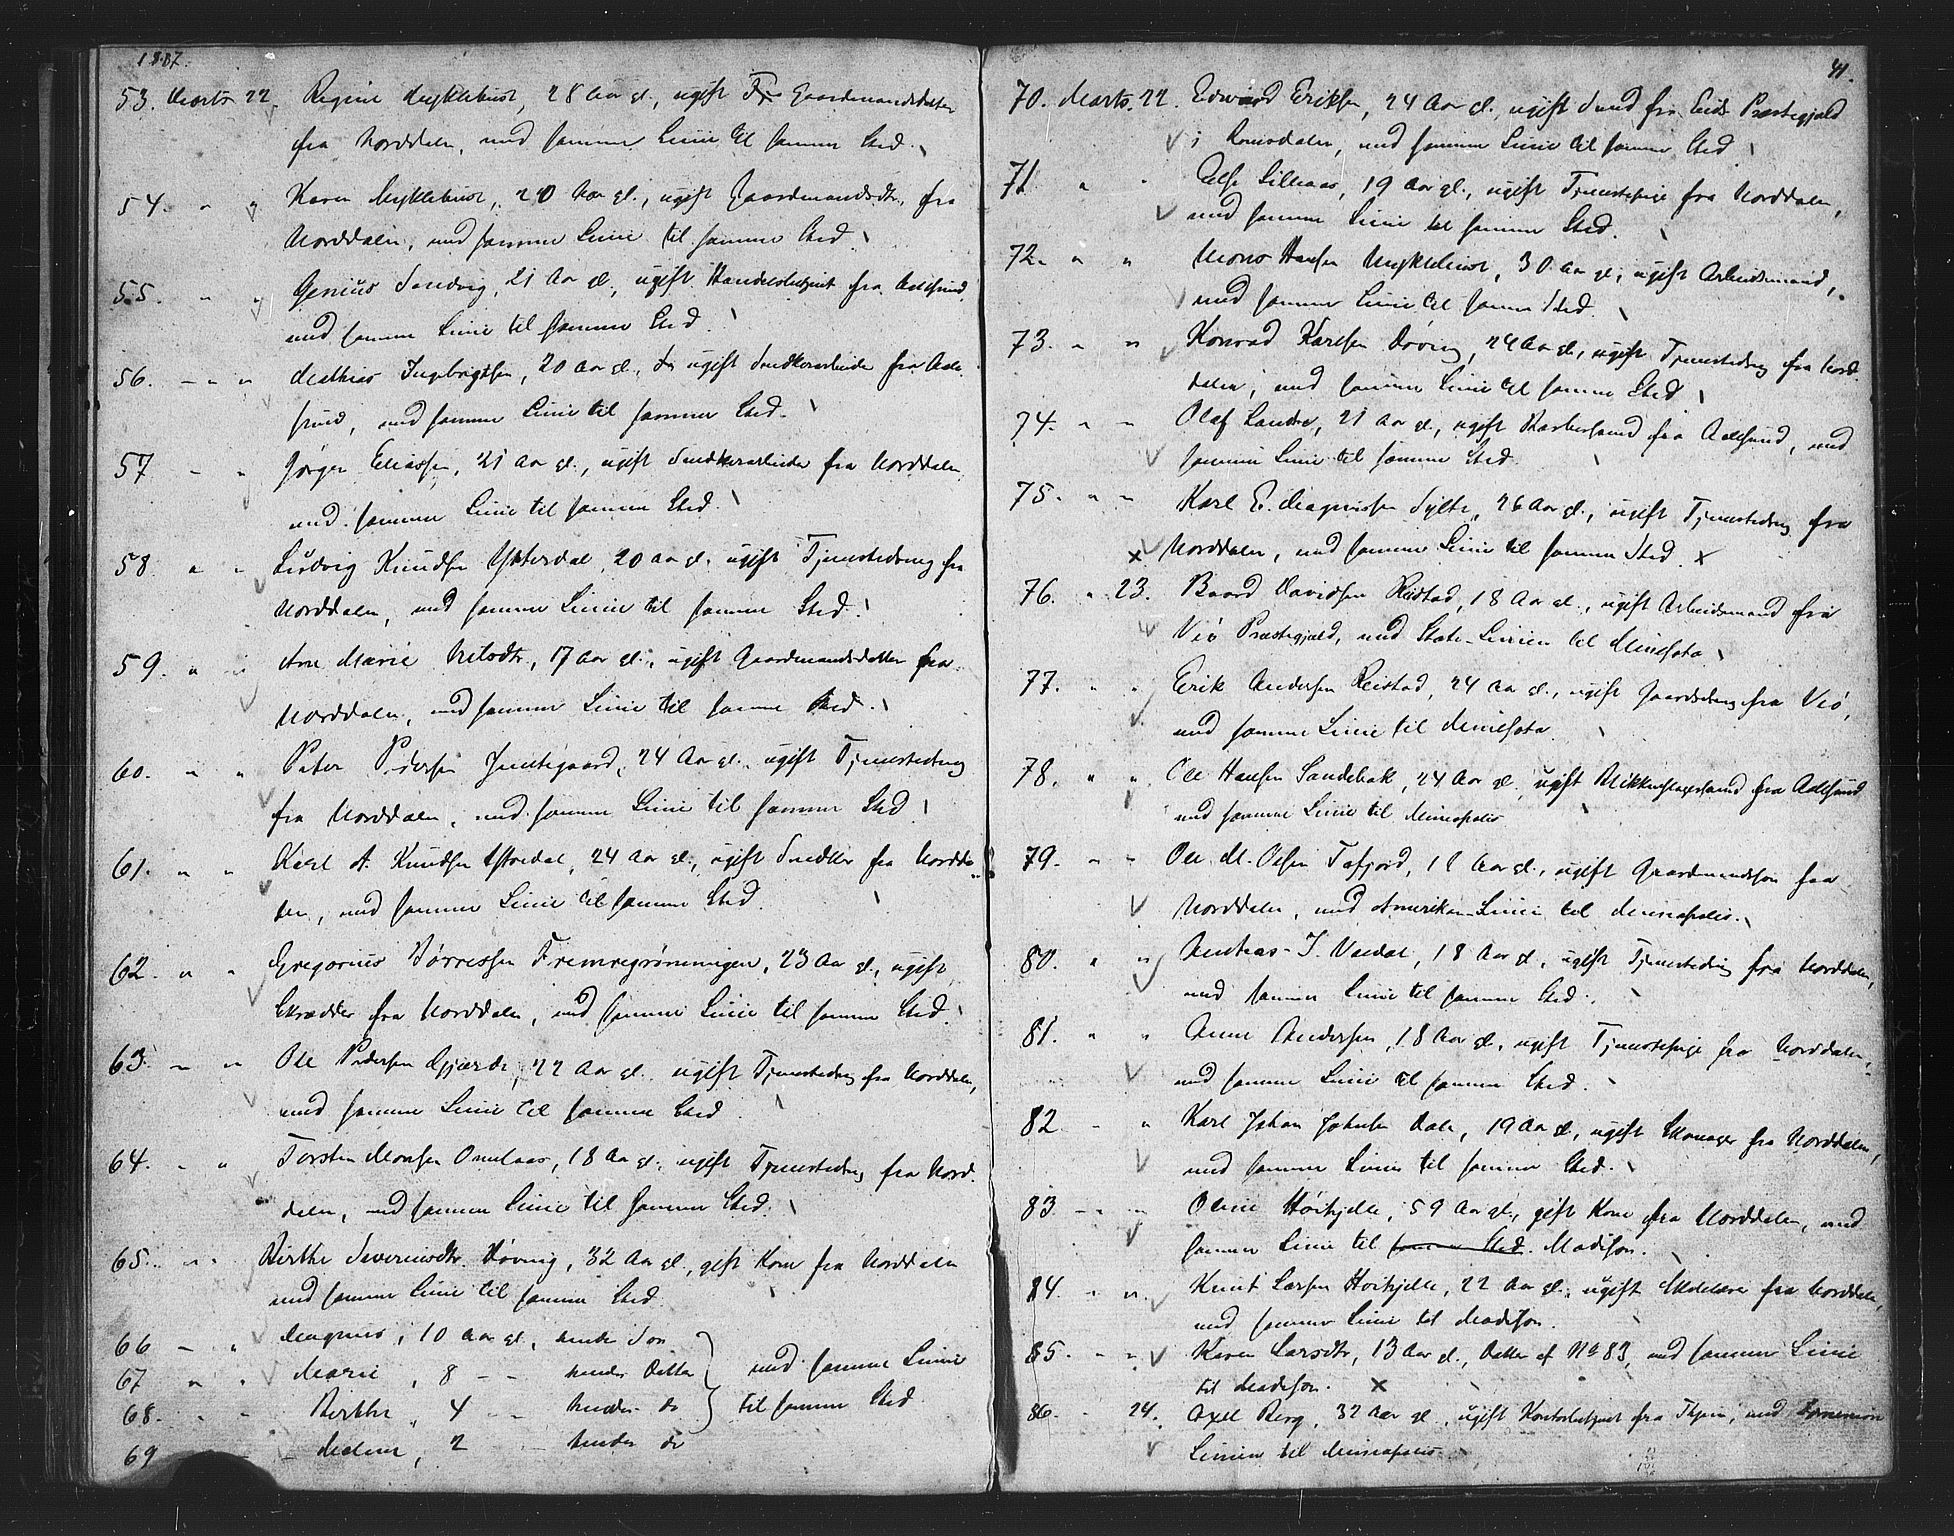 1887.
53. Marts 22. Regine Myklebust, 28 Aar gl., ugift Gaardmandsdatter
fra Norddalen, med samme Linie til samme Sted.
54. " " Karen Myklebust, 20 Aar gl., ugift Gaardmandsdtr. fra
Norddalen, med samme Linie til samme Sted.
55. " " Genius Sandvig, 21 Aar gl., ugift Handelsbetjent fra Aalesund,
med samme Linie til samme Sted.
56. " " Mathias Ingebrigtsen, 20 Aar gl., ugift Snedkerarbeider fra Aale-
sund, med samme Linie til samme Sted.
57 " " Jørgen Eliassen, 21 Aar gl., ugift Snedkerarbeider fra Norddalen
med samme Linie til samme Sted.
58 " " Ludvig Knudsen Ytterdal, 20 Aar gl. ugift Tjenestedreng fra
Norddalen, med samme Linie til samme Sted.
59. " " Ane Marie Nilsdtr, 17 Aar gl., ugift Gaardmandsdatter fra
Norddalen, med samme Linie til samme Sted.
60. " " Peter Pedersen 24 Aar gl., ugift Tjenestedreng
fra Norddalen, med samme Linie til samme Sted.
61. " " Karl A. Knudsen 24 Aar gl., ugift Snedker fra Nordda-
len, med samme Linie til samme Sted.
62. " " Gregorius Børressen Fremregrønningen, 23 Aar gl., ugift
Skrædder fra Norddalen, med samme Linie til samme Sted.
63. " " Ole Pedersen Gjærde, 22 Aar gl. ugift Tjenestedreng fra Norddalen,
med samme Linie til samme Sted.
64. " " Torsten Monsen Omenaas, 18 Aar gl., ugift Tjenestedreng fra Nord-
dalen, med samme Linie til samme Sted.
65. " " Birthe Severinsdtr. Døving, 32 Aar gl., gift Kone fra Norddalen
med samme Linie til samme Sted.
66 " " Magnus, 10 Aar gl., hendes Søn
67 " " Marie, 8 " " hendes Datter med samme Linie
68. " " Birthe, 4 " " hendes do til samme Sted.
69 " 2 " hendes do
41.
70. Marts. 22. Edvard Eriksen, 24 Aar gl., ugift Smed fra Eids Præstegjæld
i Romsdalen, med samme Linie til samme Sted
71. " " Else Lilleaas, 19 Aar gl., ugift Tjenestepige fra Norddalen,
med samme Linie til samme Sted.
72. " " Mons Hansen Myklebust, 30 Aar gl., ugift Arbeidsmand,
med samme Linie til samme Sted.
73. " " Konrad Karlsen Døving, 24 Aar gl., ugift Tjenestedreng fra Nord-
dalen, med samme Linie til samme Sted
74. " " Olaf Landre, 21 Aar gl., ugift Barbersvend fra Aalesund, med
samme Linie til samme Sted.
75. " " Karl E. Magnussen Sylte, 26 Aar gl., ugift Tjenestedreng fra
x Norddalen, med samme Linie til samme Sted. x
76. " 23. Baard Davidsen Reistad, 18 Aar gl., ugift Arbeidsmand fra
Veø Præstegjæld, med State-Linien til Minesota.
77. " " Erik Andersen Reistad, 24 Aar gl., ugift Gaardsdreng fra Veø,
med samme Linie til Minesota
78. " " Ole Hansen Sandebak, 24 Aar gl. ugift Blikkenslagersvend fra Aalesund
med samme Linie til Mineapolis
79. " " Ole M. Olsen Tafjord, Aar gl., ugift Gaardmandssøn fra
Norddalen, med Amerikan-Linie til Mineapolis.
80. " " Andreas I. Valdal, 18 Aar gl., ugift Tjenestedreng fra Norddalen,
med samme Linie til samme Sted.
81. " " Anne Andersen, 18 Aar gl., ugift Tjenestepige fra Norddalen,
med samme Linie til samme Sted.
82 " " Karl Johan Jakobsen Dale, 19 Aar gl., ugift Skomager fra Norddalen,
med samme Linie til samme Sted.
83 " " Oline Høihjelle, 59 Aar gl., gift Kone fra Norddalen, med
samme Linie til samme Sted. Madison.
84. " " Knut Larsen Høihjelle, 22 Aar gl., ugift Skolelærer fra Norddalen,
med samme Linie til Madison.
85. " " Karen Larsdtr, 13 Aar gl., Datter af No 83, med samme Linie
til Madison. x
86. " 24. Axel Berg, 32 Aar gl., ugift Kontorbetjent fra med
Linien til Mineapolis.